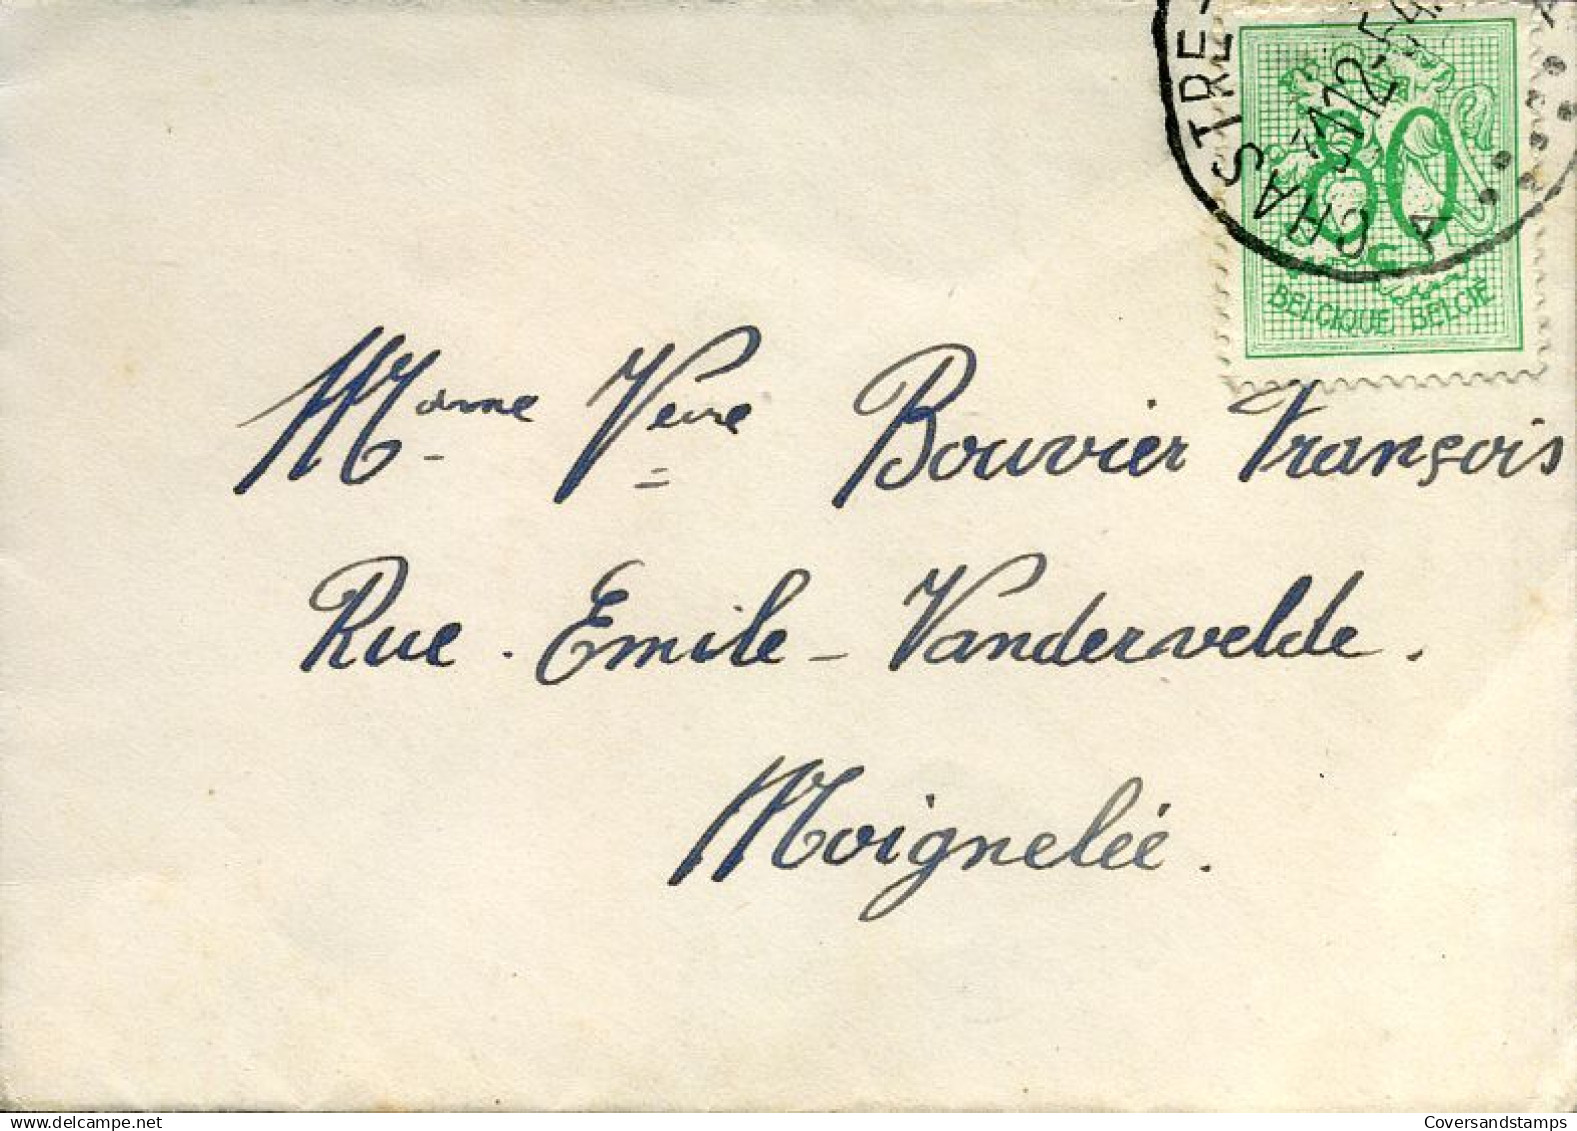 CHASTRE-
A
80
c
BELGIQUE BELGIË
Mame Veuve Bouvier François
Rue . Emile - Vandervelde .
Moignelée .
www.delcampe.net
Coversandstamps